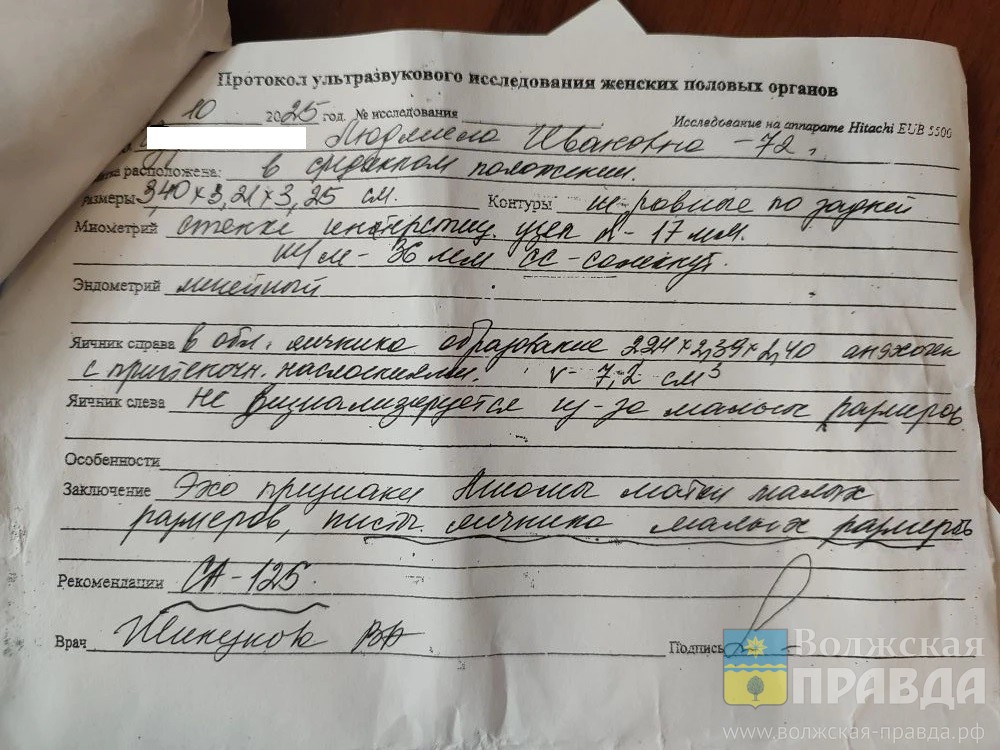 Протокол ультразвукового исследования женских половых органов
10 2025 год. № исследования
Исследование на аппарате Hitachi EUB 5500
Людмила Ивановна - 72 г.
расположена: в срединном положении.
размеры 3,40 х 3,21 х 3,25 см. Контуры не ровные по задней
Миометрий стенке интерстиц. узел d - 17 мм.
ш/м - 36 мм сомкнут.
Эндометрий линейный
Яичник справа в обл. яичника образование 294 х 2,39 х 2,40 анэхоген
с пристеночн. наслоениями. v - 7,2 см³
Яичник слева не визуализируется из-за малых размеров
Особенности
Заключение Эхо признаки Миомы матки малых
размеров, кисты яичника малых размеров
Рекомендации СА - 125.
Врач ВА Подпись
Волжская
ПРАВДА
www.волжская-правда.рф